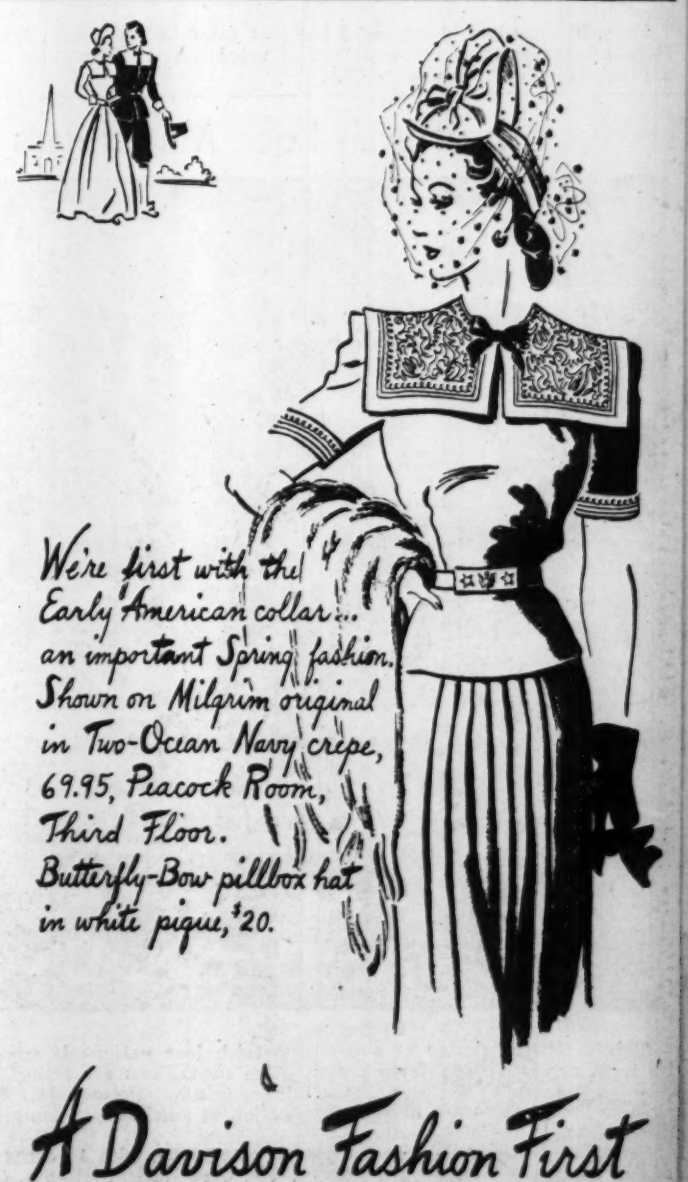 We're first with the
Early American collar...
an important Spring fashion.
Shown on Milgrim original
in Two-Ocean Navy crepe,
69.95, Peacock Room,
Third Floor.
Butterfly-Bow pillbox hat
in white pique, $20.
A Davison Fashion First